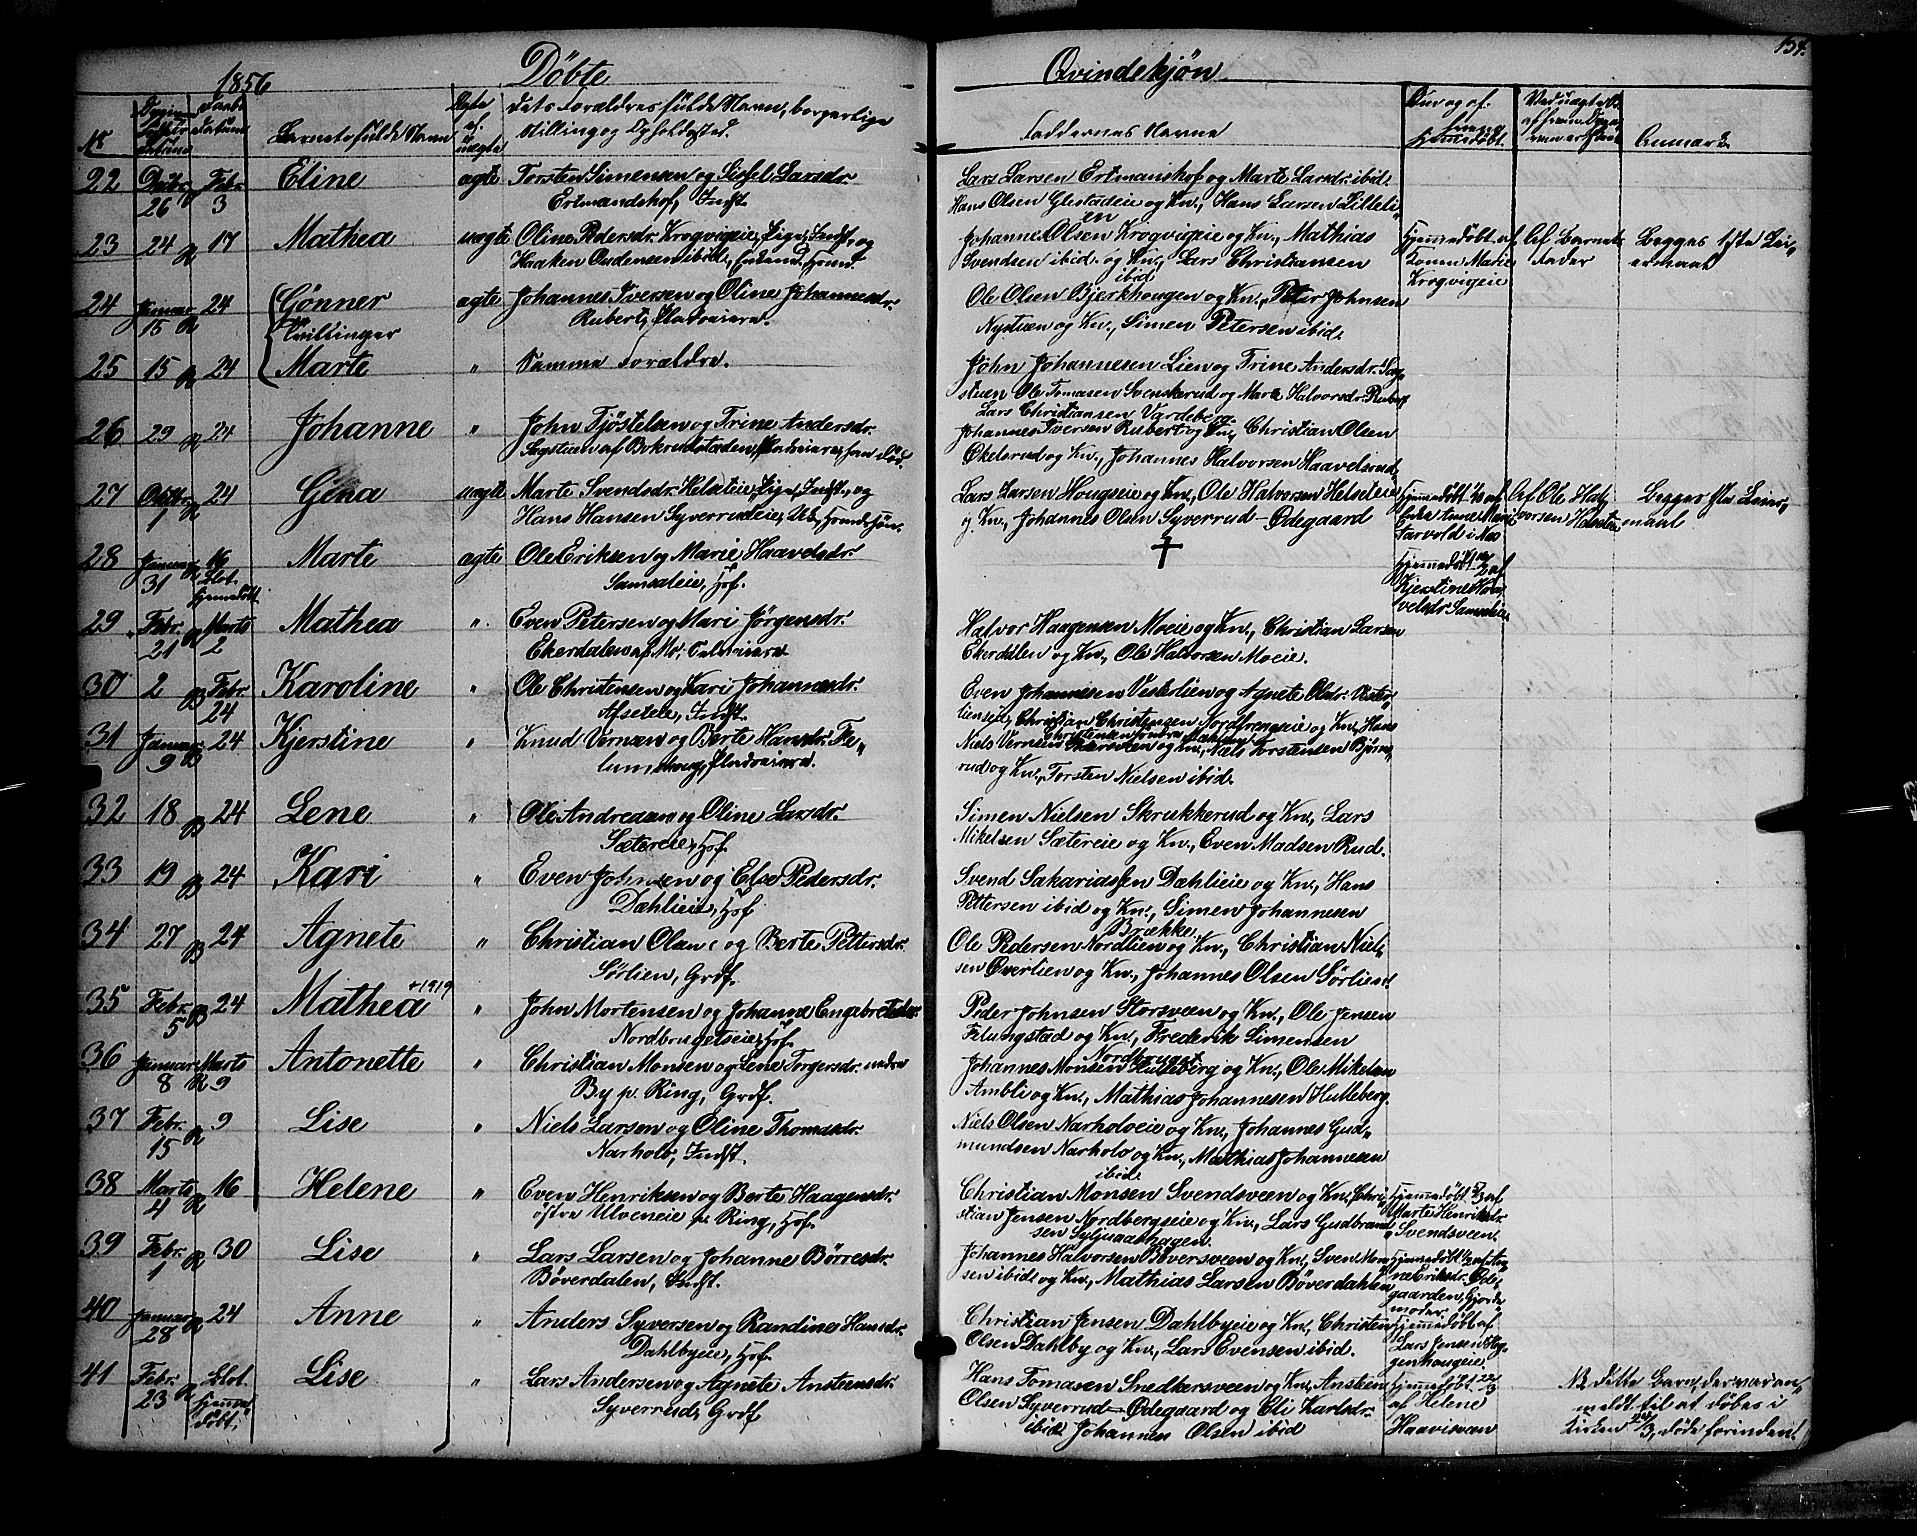 1856 Döbte Qvindekjön 154.
No Barnets fulde Navn Dets Forældres fulde Navn, borgerlige
Stilling og Opholdssted. Faddernes Navne Anmærk.
22 Decbr. 26 R Febr. 3 Eline ægte Torsten Simensen og Sissel Larsdr.
Ertmandshof, Indst.
Lars Larsen Ertmanshof og Marte Larsdr. ibid.
Hans Olsen Glestadeie og Kn., Hans Larsen Lilleli-
en
23 24 R 17 Mathea uægte Oline Pedersdr. Krogvigeie, Pige, Indst., og
Haaken Oudensen ibid., Enkemd. Huusmd.
Johannes Olsen Krogvigeie og Kn., Mathias
Svendsen ibid. og Kn., Lars Christiansen
ibid
Hjemmedöbt af
Konen Marie
Krogvigeie
Af Barnets
Fader
Begges 1ste Lei-
ermaal
24 Januar 15 R 24 Gönner ægte Johannes Iversen og Oline Johannesdr.
Tvillinger Rubert, Pladseiere.
Ole Olsen Bjerkhougen og Kn., Peter Johnsen
Nystuen og Kn., Simen Petersen ibid.
25 15 R 24 Marte " Samme Forældre.
John Johannesen Lien og Trine Andersdr. Sag-
stuen Ole Tomasen Svenskerud og Marte Halvorsdr. Rubert
Lars Christiansen Vardeberg
26 29 R 24 Johanne " John Tjöstelsen og Trine Andersdr.
Sagstuen af Bokrudstaden, Pladseiere, han död.
Johannes Iversen Rubert og Kn., Christian Olsen
Ekelsrud og Kn., Johannes Halvorsen Haavelsrud
27 Octbr. 1 R 24 Gina uægte Marte Svendsdr. Helseteie, Pige, Indst., og
Hans Hansen Syverrudeie, Uk.,
Lars Larsen Hougseie og Kn., Ole Halvorsen Helseteie
og Kn., Johannes Olsen Syverrud-Ödegaard
Hjemmedöbt af
Enke Anne Marie
Garvold i Næs
Af Ole Hal-
vorsen Helseteie
Begges 1ste Leier-
maal
28 Januar 31 R 16 Blot Hjemmedöbt Marte ægte Ole Eriksen og Marie Haavelsdr.
Samsaleie, Hsf.
†
Hjemmedöbt af
Kjerstine Haa-
velsdr. Samsaleie
29 Febr. 21 R Marts 2 Mathea " Even Petersen og Mari Jörgensdr.
Ekerdalen af Mo,
Halvor Haagensen Moeie og Kn., Christian Larsen
Ekerdalen og Kn., Ole Halvorsen Moeie.
30 2 B Febr. 24 Karoline " Ole Christensen og Kari Johannesdr.
Afseteie, Indst.
Even Johannesen Vesterlien og Agnete Olsdr. Vester-
lieneie, Christian Christensen Nordhrengseie og Kn., Hans
31 Januar 9 B 24 Kjerstine " Knud Vernsen og Berte Hansdr. Fe-
lumshoug, Pladseiere.
Niels Vernsen og Kn., Niels Torstensen Björne-
rud og Kn., Torsten Nielsen ibid.
32 18 B 24 Lene " Ole Andreasen og Oline Larsdr.
Sætereie, Hsf.
Simen Nielsen Skrukkerud og Kn., Lars
Mikelsen Sætereie og Kn., Even Madsen Rud.
33 19 B 24 Kari " Even Johnsen og Else Pedersdr.
Dæhlieie, Hsf
Svend Sakariassen Dæhlieie og Kn., Hans
Pettersen ibid og Kn., Simen Johannesen
Brække.
34 27 B 24 Agnete " Christian Olsen og Berte Pettersdr.
Sörlien, Grdf.
Ole Pedersen Nordlien og Kn., Christian Niel-
sen Överlien og Kn., Johannes Olsen Sörlien.
35 Febr. 5 B 24 Mathea +1919 " John Mortensen og Johanne Engebretsdr.
Nordbrugetseie, Hsf.
Peder Johnsen Storsveen og Kn., Ole Jensen
Felungstad og Kn., Frederik Simensen
Nordbruget
36 Januar 8 R Marts 9 Antonette " Christian Monsen og Lene Torgersdr. nedre
By p. Ring, Grdf.
Johannes Monsen Hulleberg og Kn., Ole Mikelsen
Ambli og Kn., Mathias Johannesen Hulleberg.
37 Febr. 15 R 9 Lise " Niels Larsen og Oline Thomasdr.
Narholo, Indst.
Niels Olsen Narholoeie og Kn., Johannes Gud-
mundsen Narholo og Kn., Mathias Johannesen
ibid.
38 Marts 4 R 16 Helene " Even Henriksen og Berte Haagensdr.
östre Ulveneie p. Ring, Hsf.
Christian Monsen Svendsveen og Kn., Chri-
stian Jensen Nordbergseie og Kn., Lars Gudbrand-
sen Syljuaashagen.
Hjemmedöbt af
Marte Henriksdr.
Svendsveen.
39 Febr. 1 R 30 Lise " Lars Larsen og Johanne Börresdr.
Böverdalen, Indst.
Johannes Halvorsen Böversveen og Kn., Sven Mon-
sen ibid. og Kn., Mathias Larsen Böverdahlen
Hjemmedöbt af An-
ne Eriksdr. Öde-
gaarden, Gjorde-
moder
40 Januar 28 R 24 Anne " Anders Syversen og Randine Hansdr.
Dahlbyeie, Hsf.
Christian Jensen Dahlbyeie og Kn., Christen
Olsen Dahlby og Kn., Lars Evensen ibid.
Hjemmedöbt af
Lars Jensen Hog-
genhougeie
41 Febr. 23 R Blot Hjemme-
döbt. Lise " Lars Andersen og Agnete Anstensdr.
Syverrud, Grdf
Hans Tomasen Snedkersveen og Kn., Ansten
Olsen Syverrud-Ödegaard og Eli Karlsdr.
ibid. Johannes Olsen ibid
Hjemmedöbt 22/3
af Helene
Haavisveen
NB dette Barn, der var an-
meldt til at döbes i
Kirken 24/3, döde forinden.